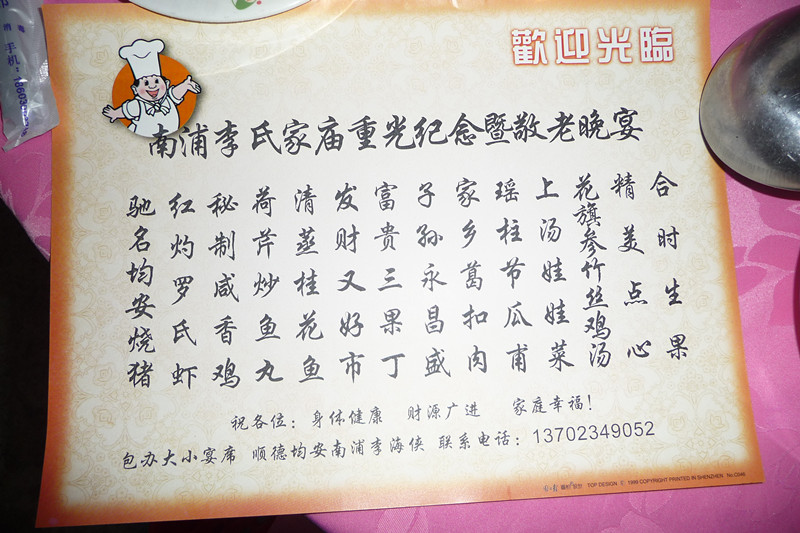 歡迎光臨
南浦李氏家庙重光纪念暨敬老晚宴
驰名均安烧猪
红灼罗氏虾
秘制咸香鸡
荷芹炒鱼丸
清蒸桂花鱼
发财又好市
富贵三果丁
子孙永昌盛
家乡葛扣肉
瑶柱节瓜甫
上汤娃娃菜
花旗参竹丝鸡汤
精美点心
合时生果
祝各位：身体健康 财源广进 家庭幸福！
包办大小宴席 顺德均安南浦李海侠 联系电话：13702349052
TOP DESIGN 1999 COPYRIGHT PRINTED IN SHENZHEN
手机：